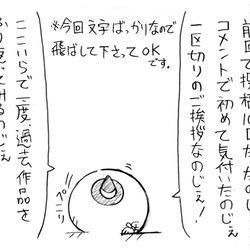 前回で投稿10回
コメントで初めて気付いたのじぇ
一区切りのご挨拶なのじぇ!
※今回文字ばっかりなので
飛ばして下さってOK
です。
ペこり
ここいらで一度、過去作品を